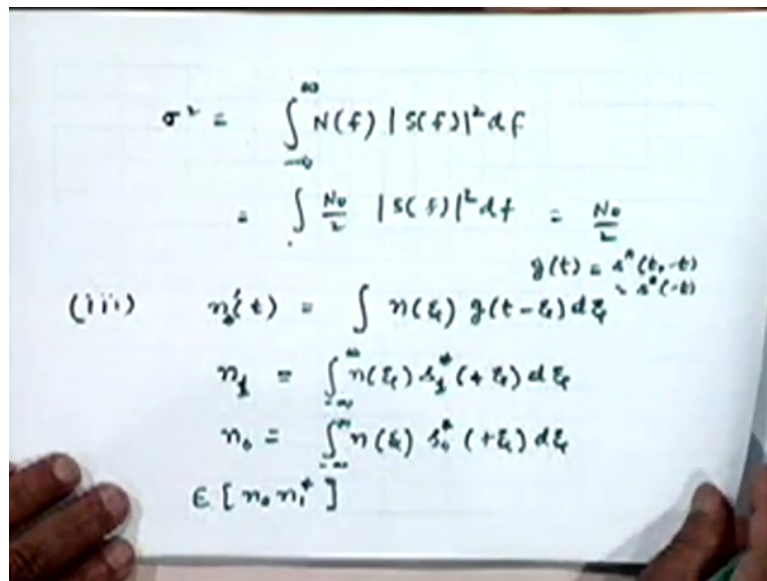 σ² = ∫_{-∞}^{∞} N(f) |S(f)|² df
= ∫ N₀/2 |S(f)|² df = N₀/2
g(t) = s*(t₀-t)
= s*(-t)
(iii) n₀'(t) = ∫ n(ξ) g(t-ξ) dξ
n₁ = ∫_{-∞}^{∞} n(ξ) s₁*(+ξ) dξ
n₀ = ∫_{-∞}^{∞} n(ξ) s₀*(+ξ) dξ
E[n₀ n₁*]